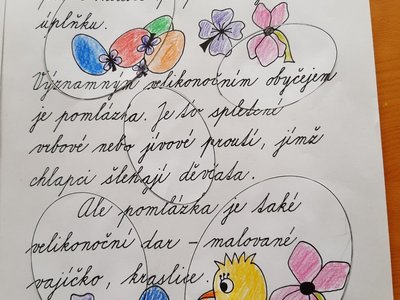 úplňku.
Významným velikonočním obyčejem
je pomlázka. Je to spletené
vrbové nebo jívové proutí, jímž
chlapci šlehají děvčata.
Ale pomlázka je také
velikonoční dar – malované
vajíčko, kraslice.